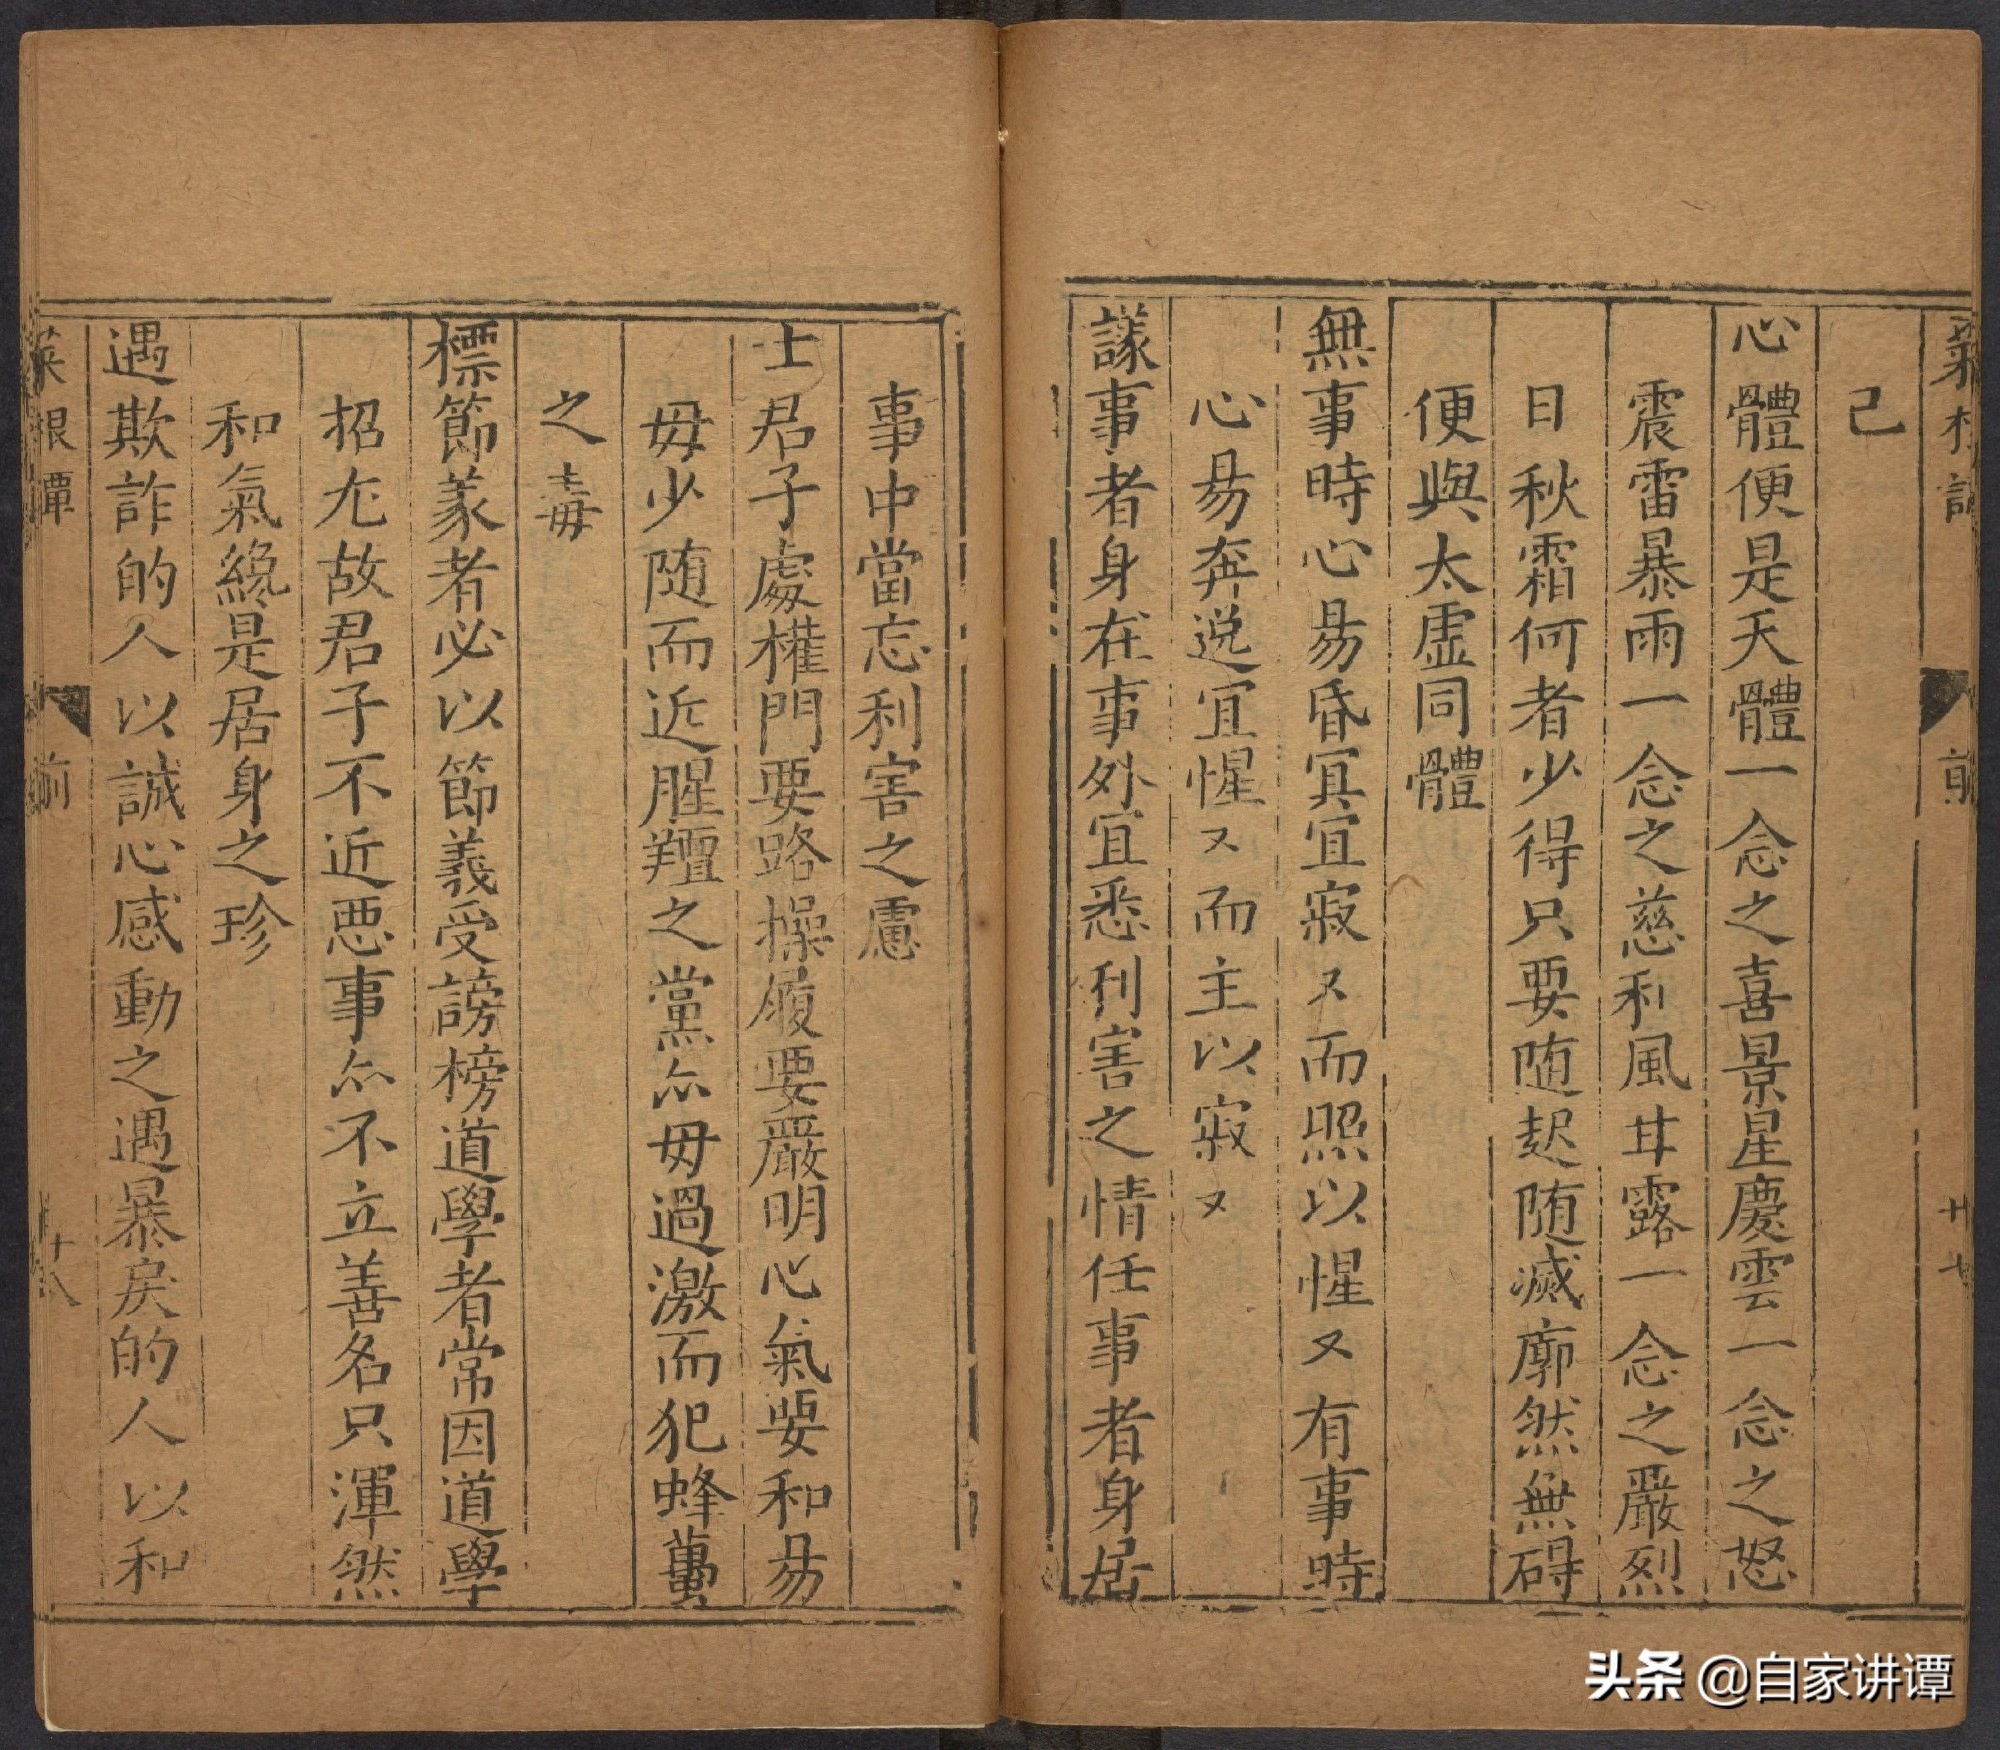 菜根譚
前
廿七
己
心體便是天體一念之喜景星慶雲一念之怒
震雷暴雨一念之慈和風甘露一念之嚴烈
日秋霜何者少得只要随起随滅廓然無碍
便與太虛同體
無事時心易昏冥宜寂又而照以惺又有事時
心易奔逸宜惺又而主以寂又
議事者身在事外宜悉利害之情任事者身居
事中當忘利害之慮
士君子處權門要路操履要嚴明心氣要和易
毋少随而近腥羶之黨亦毋過激而犯蜂蠆
之毒
標節義者必以節義受謗榜道學者常因道學
招尤故君子不近惡事亦不立善名只渾然
和氣纔是居身之珍
遇欺詐的人以誠心感動之遇暴戾的人以和
菜根譚
前
十八
头条 @自家讲谭